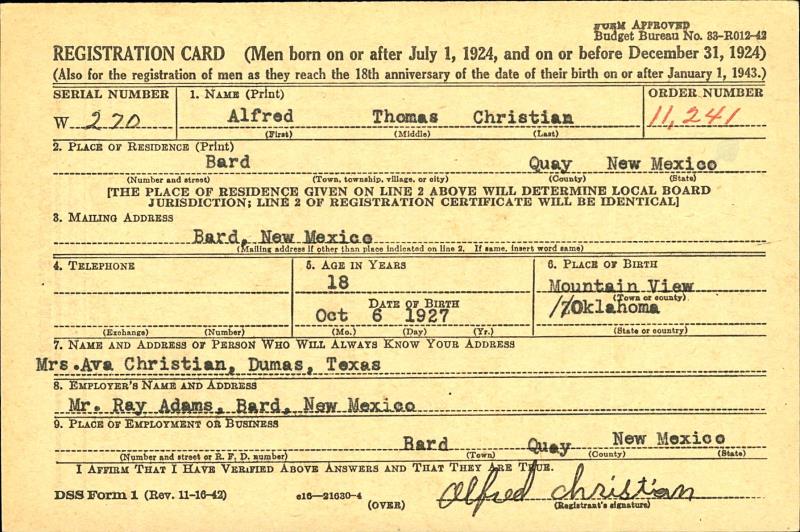 FORM APPROVED
Budget Bureau No. 33-R012-42
REGISTRATION CARD (Men born on or after July 1, 1924, and on or before December 31, 1924)
(Also for the registration of men as they reach the 18th anniversary of the date of their birth on or after January 1, 1943.)
SERIAL NUMBER 1. NAME (Print) ORDER NUMBER
W 270 Alfred Thomas Christian 11,241
(First) (Middle) (Last)
2. PLACE OF RESIDENCE (Print)
Bard Quay New Mexico
(Number and street) (Town, township, village, or city) (County) (State)
[THE PLACE OF RESIDENCE GIVEN ON LINE 2 ABOVE WILL DETERMINE LOCAL BOARD
JURISDICTION; LINE 2 OF REGISTRATION CERTIFICATE WILL BE IDENTICAL]
3. MAILING ADDRESS
Bard, New Mexico
(Mailing address if other than place indicated on line 2. If same, insert word same)
4. TELEPHONE 5. AGE IN YEARS 6. PLACE OF BIRTH
18 Mountain View
DATE OF BIRTH (Town or county)
Oct 6 1927 Oklahoma
(Exchange) (Number) (Mo.) (Day) (Yr.) (State or country)
7. NAME AND ADDRESS OF PERSON WHO WILL ALWAYS KNOW YOUR ADDRESS
Mrs.Ava Christian, Dumas, Texas
8. EMPLOYER'S NAME AND ADDRESS
Mr. Ray Adams, Bard, New Mexico
9. PLACE OF EMPLOYMENT OR BUSINESS
Bard Quay New Mexico
(Number and street or R. F. D. number) (Town) (County) (State)
I AFFIRM THAT I HAVE VERIFIED ABOVE ANSWERS AND THAT THEY ARE TRUE.
DSS Form 1 (Rev. 11-16-42) e16—21630-4 (OVER) Alfred Christian
(Registrant's signature)